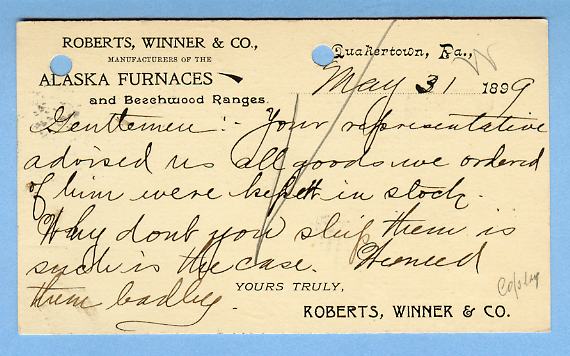 ROBERTS, WINNER & CO.,
MANUFACTURERS OF THE
ALASKA FURNACES
and Beechwood Ranges.
Quakertown, Pa.,
W
May 31 1899
Gentlemen:- Your representative
advised us all goods we ordered
of him were kept in stock.
Why dont you ship them is
such is the case. We need
them badley.
YOURS TRULY,
ROBERTS, WINNER & CO.